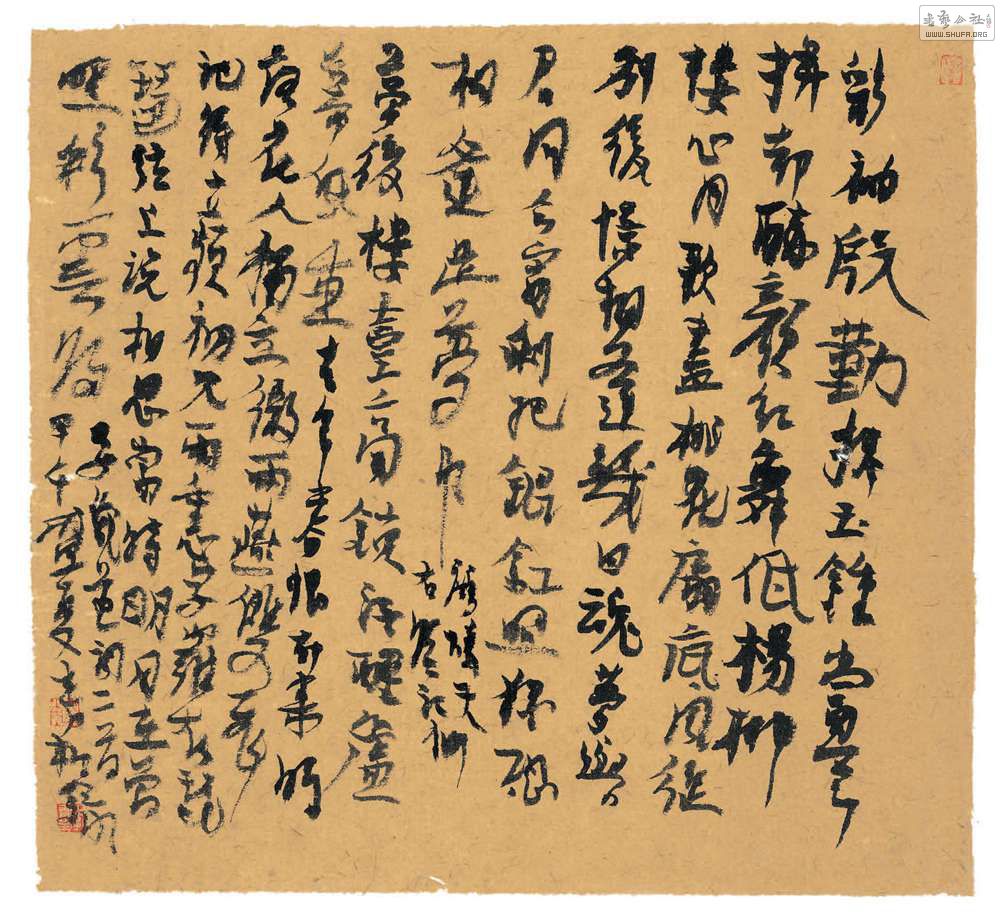 書藝公社
WWW.SHUFA.ORG
彩袖殷勤捧玉鍾當年
拚卻醉顏紅舞低楊柳
樓心月歌盡桃花扇底風從
別後憶相逢幾回魂夢與
君同今宵剩把銀釭照猶恐
相逢是夢中
鷓鴣天
臨江仙
夢後樓臺高鎖酒醒簾
幕低垂去年春恨卻來時
落花人獨立微雨燕雙飛
記得小蘋初見兩重心字羅衣琵
琶弦上說相思當時明月在曾
照彩雲歸
晏幾道詞二首
甲午盛夏